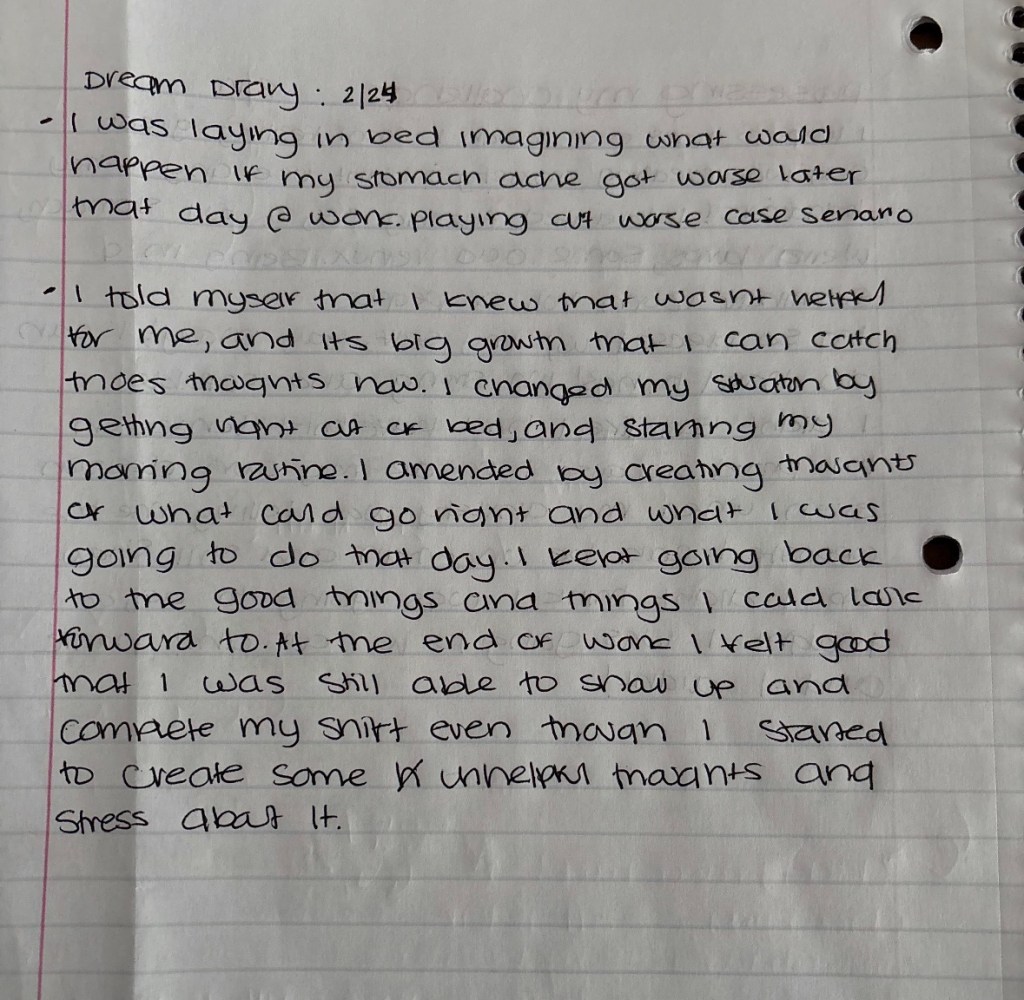 Dream Diary : 2/24
- I was laying in bed imagining what would
happen if my stomach ache got worse later
that day @ work. playing out worse case senario
- I told myself that I knew that wasnt helpful
for me, and its big growth that I can catch
thoes thoughts now. I changed my situation by
getting right out of bed, and starting my
morning routine. I amended by creating thoughts
of what could go right and what I was
going to do that day. I kept going back
to the good things and things I could look
forward to. At the end of work I felt good
that I was still able to show up and
complete my shift even though I started
to create some unhelpful thoughts and
stress about it.